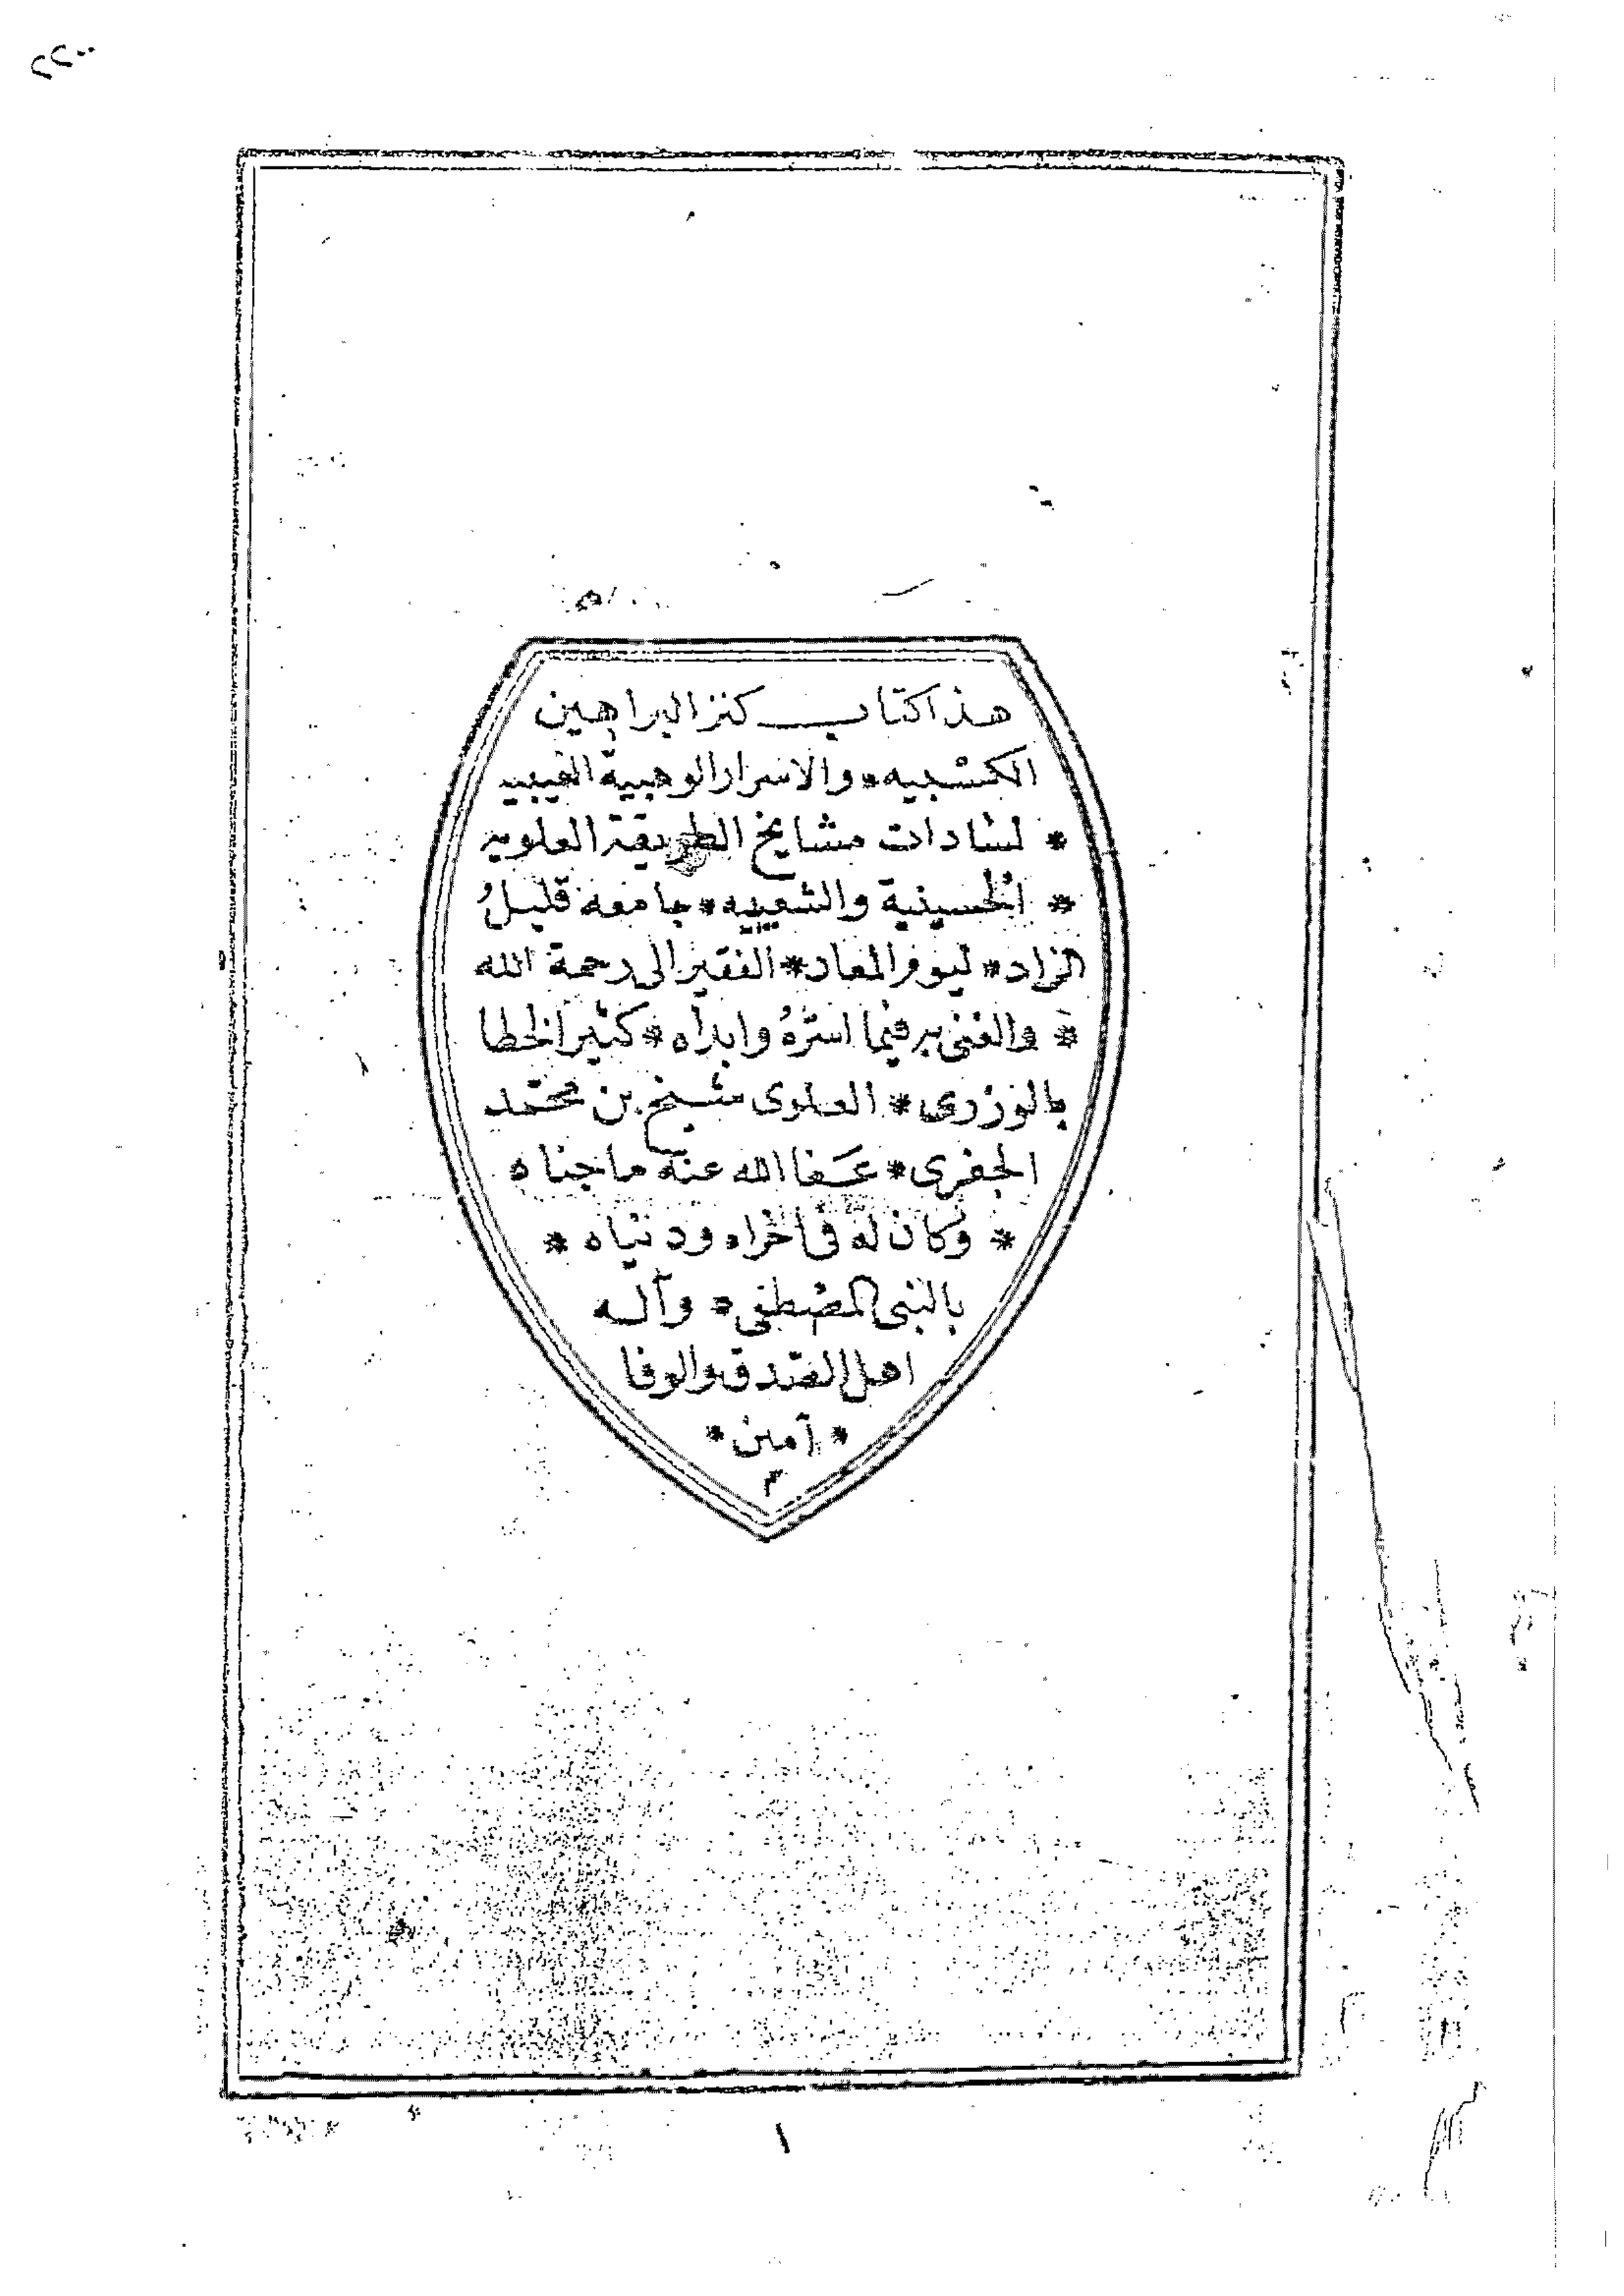 هذا كتاب كنز البراهين
الكسبيه * والاسرار الوهبية الغيبيه
* لسادات مشايخ الطريقة العلويه
* الحسينية والشعيبيه * جامعه قليلُ
الزاد * ليوم المعاد * الفقير الى رحمة الله
* والغنى به فيما اسرّهُ وابداه * كثير الخطا
بالوزرى * العلوى شيخ بن محمّد
الجفرى * عَفا الله عنه ما جناه
* وكان له فى اخراه ودنياه *
بالنبى المصطفى * وآله
اهل الصّدق والوفا
* آمين *
م
١